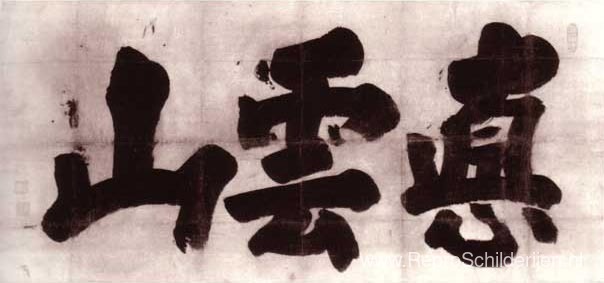 悳雲山
www.ReproSchilderijen.nl